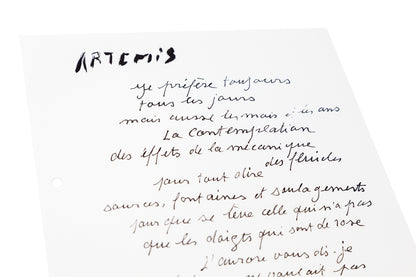 ARTEMIS
je préfère toujours
tous les jours
mais aussi les mois et les ans
La contemplation
des effets de la mécanique
des fluides
pour tout dire
sources, fontaines et soulagements
pour que se lève celle qui n'a pas
que les doigts qui sont de rose
L'aurore vous dis-je
voulait pas